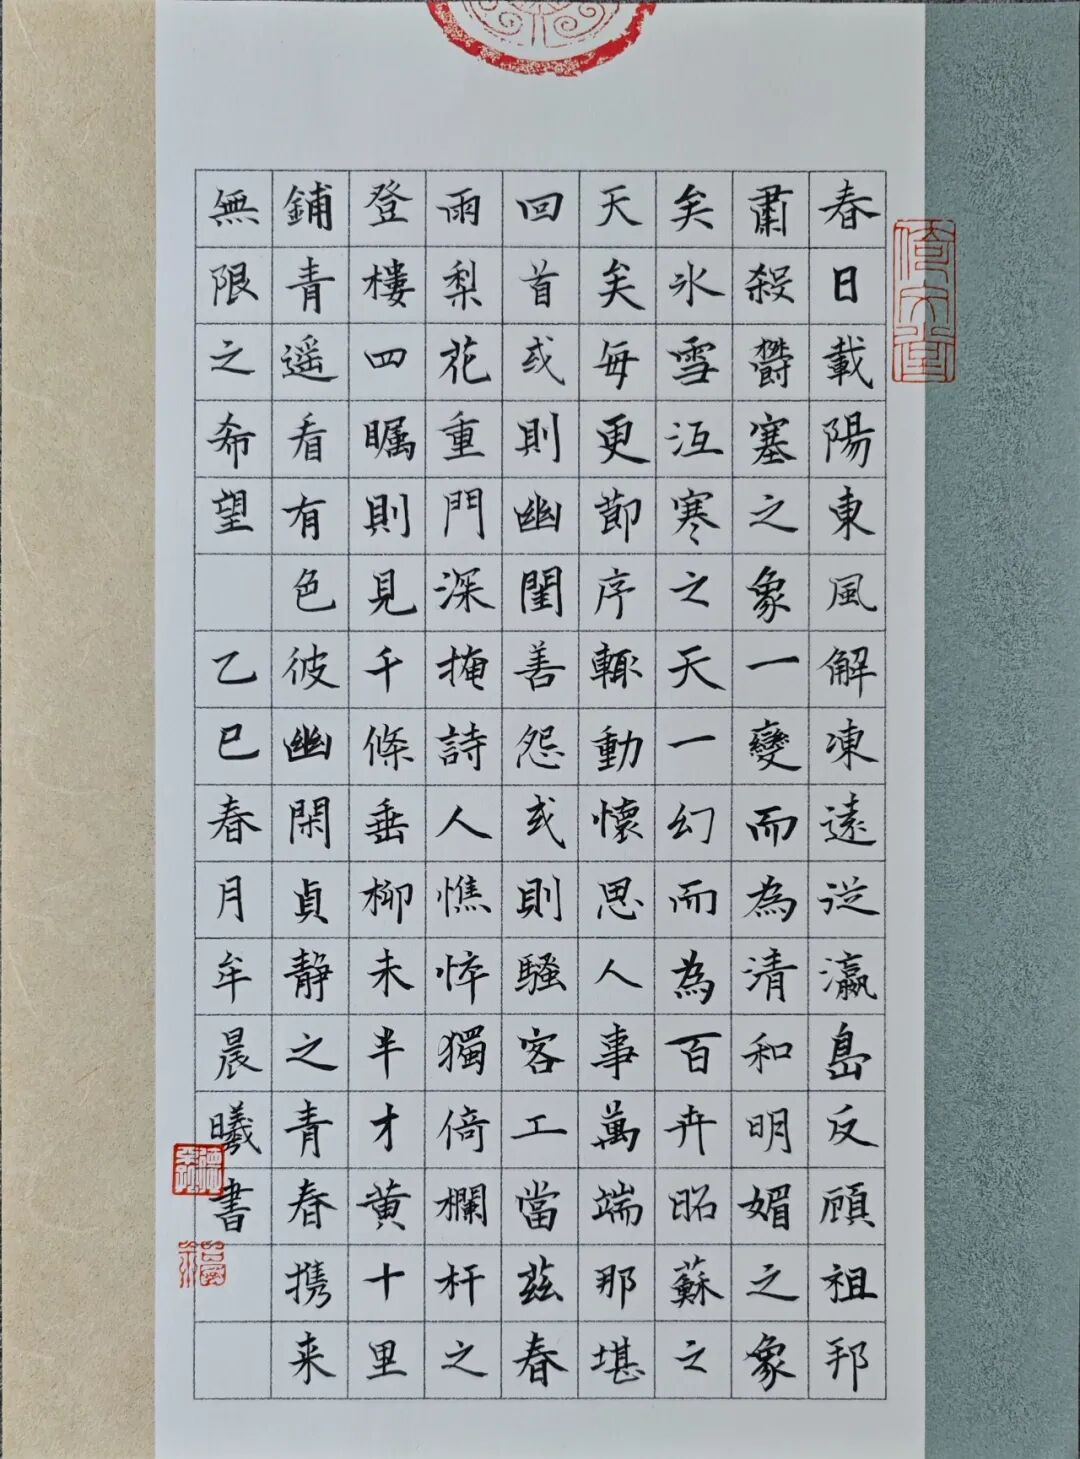 春日載陽東風解凍遠從瀛島反顧祖邦
肅殺欝塞之象一變而為清和明媚之象
矣氷雪沍寒之天一幻而為百卉昭蘇之
天矣每更節序輒動懷思人事萬端那堪
回首或則幽閨善怨或則騷客工當茲春
雨梨花重門深掩詩人憔悴獨倚欄杆之
登樓四矚則見千條垂柳未半才黄十里
鋪青遥看有色彼幽閑貞静之青春携来
無限之希望 乙巳春月牟晨曦書